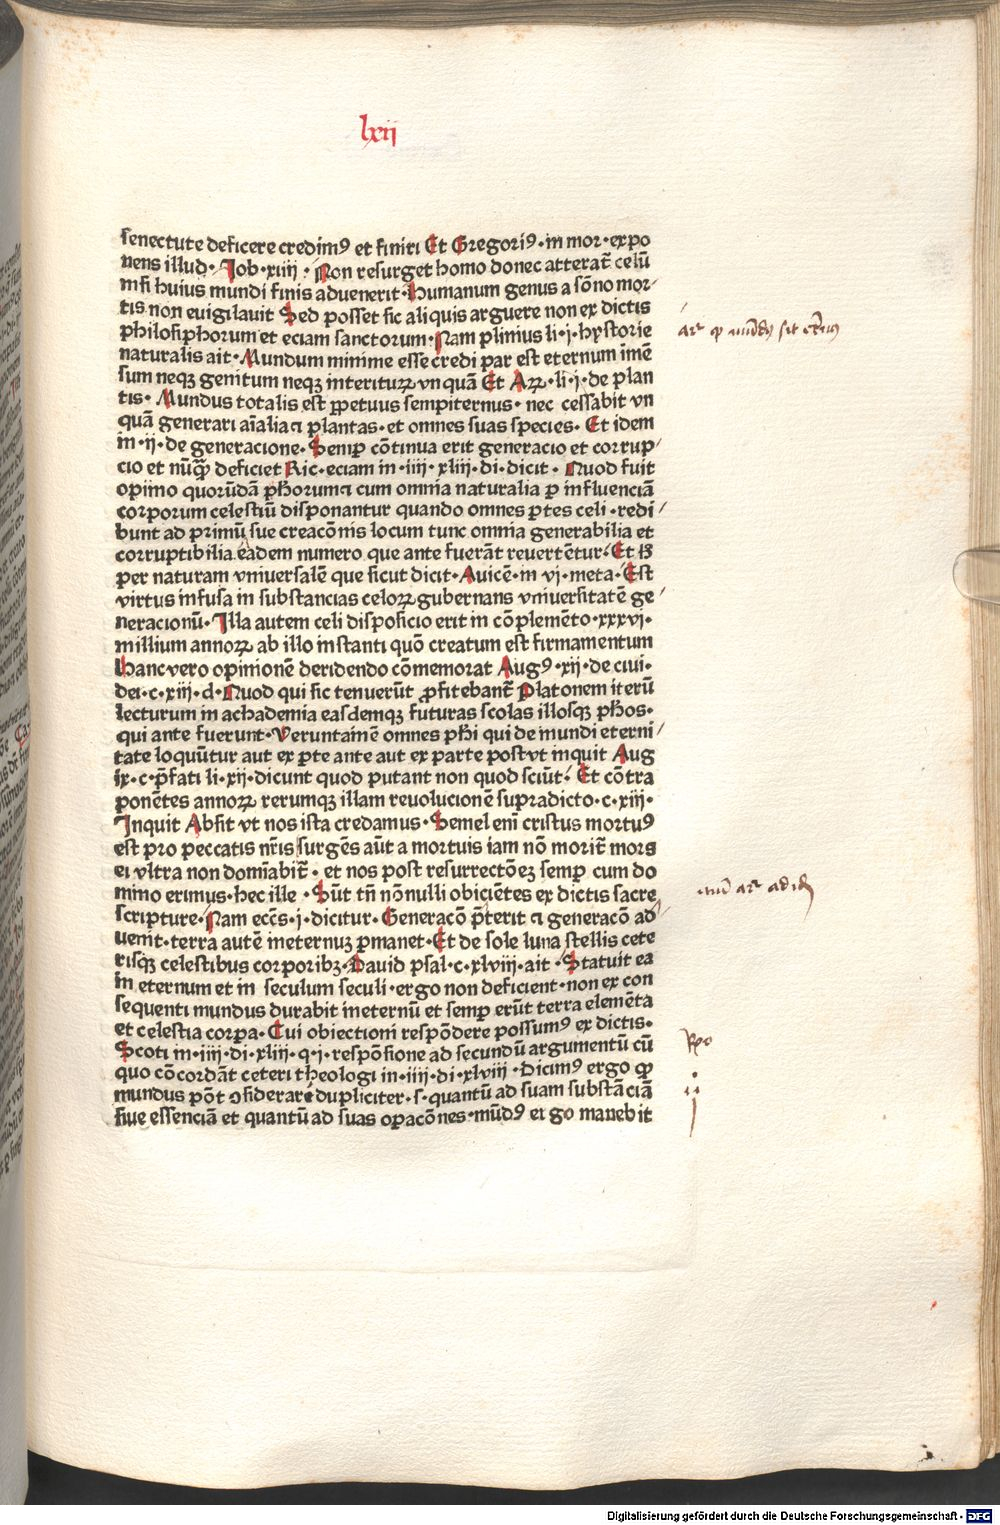 lxii
senectute deficere credimꝰ et finiri Et Gregoriꝰ · in mor · expo
nens illud · Job · xiiii · Non resurget homo donec atterat̃ celũ
.i. nisi huius mundi finis aduenerit · Humanum genus a sõno mor⸗
tis non euigilauit Sed posset sic aliquis arguere non ex dictis
philosiphorum et eciam sanctorum · Nam plinius li · i · hystorie
naturalis ait · Mundum minime esse credi par est eternum imẽ
sum neqꝫ genitum neqꝫ interiturꝝ vn quã Et Aꝝ · li · i · de plan
tis · Mundus totalis est ꝑpetuus sempiternus · nec cessabit vn
quã generari aĩalia ⁊ plantas · et omnes suas species · Et idem
in · ii · de generacione · Semꝑ cõtinua erit generacio et corrup⸗
cio et nũqꝗ̃ deficiet Ric · eciam in · iiii · xliii · di · dicit · Quod fuit
opiĩo quorũdã pħorum ⁊ cum omnia naturalia ꝑ influenciã
corporum celestiũ disponantur quando omnes ꝑtes celi · redi⸗
bunt ad primũ sue creacõnis locum tunc omnia generabilia et
corruptibilia eadem numero que ante fuerãt reuertẽtur · Et ꝧ
per naturam vniuersalẽ que sicut dicit · Auicẽ · in vi · meta · Est
virtus infusa in substancias celoꝝ gubernans vniuersitatẽ ge⸗
neracionũ · Illa autem celi disposicio erit in cõplemẽto · xxxvi ·
millium annoꝝ ab illo instanti quõ creatum est firmamentum
Hanc vero opinionẽ deridendo cõmemorat Augꝰ · xii · de ciui ·
dei · c · xiii · d · Quod qui sic tenuerũt ꝓfitebant̃ Platonem iterũ
lecturum in achademia easdemqꝫ futuras scolas illosqꝫ pħos ·
qui ante fuerunt · Veruntamẽ omnes pħi qui de mundi eterni⸗
tate loquũtur aut ex ꝑte ante aut ex parte post vt inquit Aug
ix · c · p̃fati li · xii · dicunt quod putant non quod sciũt · Et cõtra
ponẽtes annoꝝ rerumqꝫ illam reuolucionẽ supradicto · c · xiii ·
Inquit Absit vt nos ista credamus · Semel enĩ cristus mortuꝰ
est pro peccatis nr̃is surgẽs aũt a mortuis iam nõ morit̃ mors
ei vltra non domĩabit̃ · et nos post resurrectõeꝫ semꝑ cum do
mino erimus · hec ille · Sũt tñ nõnulli obiciẽtes ex dictis sacre
scripture · Nam ecẽs · i · dicitur · Generacõ p̃terit ⁊ generacõ ad⸗
uenit · terra autẽ ineternuꝫ ꝑmanet · Et de sole luna stellis cete
risqꝫ celestibus corporibꝫ · Dauid psal · c · xlviii · ait · Statuit ea
in eternum et in seculum seculi · ergo non deficient · non ex con
sequenti mundus durabit ineternũ et semꝑ erũt terra elemẽta
et celestia corpa · Cui obiectioni respõdere possumꝰ ex dictis ·
Scoti in · iiii · di · xliii · q · i · respõsione ad secundũ argumentũ cũ
quo cõcordãt ceteri theologi in · iiii · di · xlviii · Dicimꝰ ergo ꝙ
mundus põt ↄsiderari dupliciter · s · quantũ ad suam substãciã
siue essenciã et quantũ ad suas oꝑacõnes · mũdꝰ ergo manebit
Digitalisierung gefördert durch die Deutsche Forschungsgemeinschaft - DFG